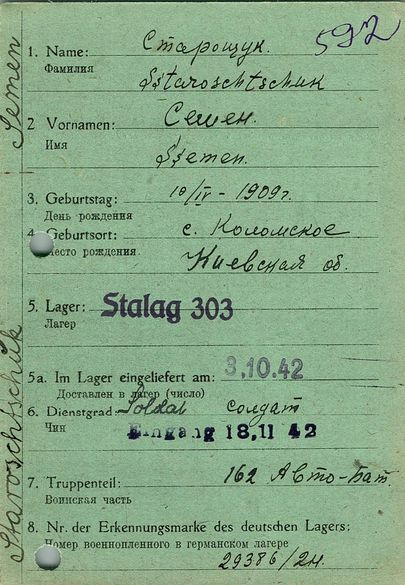 592
1. Name: Старощук.
Фамилия Sstaroschtschuk
2 Vornamen: Семен.
Имя Ssemen.
3. Geburtstag: 10/IV - 1909г.
День рождения
4. Geburtsort: с. Коломское
Место рождения Киевская об.
5. Lager: Stalag 303
Лагерь
5a. Im Lager eingeliefert am: 3.10.42
Доставлен в лагерь (число)
6. Dienstgrad: Soldat солдат
Чин Eingang 18.11 42
7. Truppenteil: 162 Авто-бат.
Воинская часть
8. Nr. der Erkennungsmarke des deutschen Lagers:
Номер военнопленного в германском лагере
29386/2н.
Staroschtschuk Semen